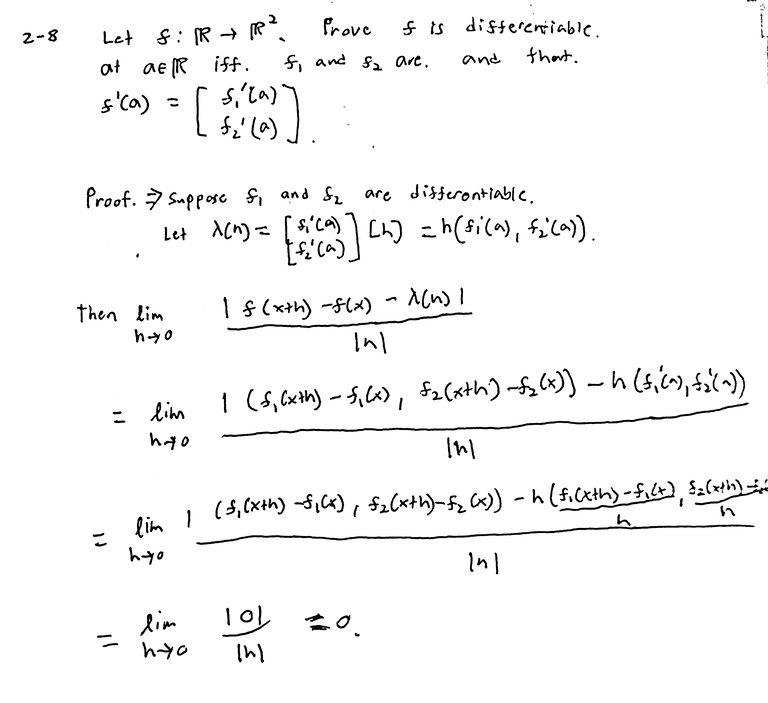 2-8 Let f : ℝ → ℝ². Prove f is differentiable.
at a∈ℝ iff. f₁ and f₂ are. and that.
f'(a) = [ f₁'(a)
f₂'(a) ].
Proof. ⇒ Suppose f₁ and f₂ are differentiable.
Let λ(h) = [ f₁'(a)
f₂'(a) ] [h] = h(f₁'(a), f₂'(a)).
then lim h→0 | f(x+h) - f(x) - λ(h) | / |h|
= lim h→0 | (f₁(x+h) - f₁(x), f₂(x+h) - f₂(x)) - h(f₁'(a), f₂'(a)) / |h|
= lim h→0 | (f₁(x+h) - f₁(x), f₂(x+h) - f₂(x)) - h( f₁(x+h) - f₁(x) / h, f₂(x+h) - / h / |h|
= lim h→0 |0| / |h| = 0.